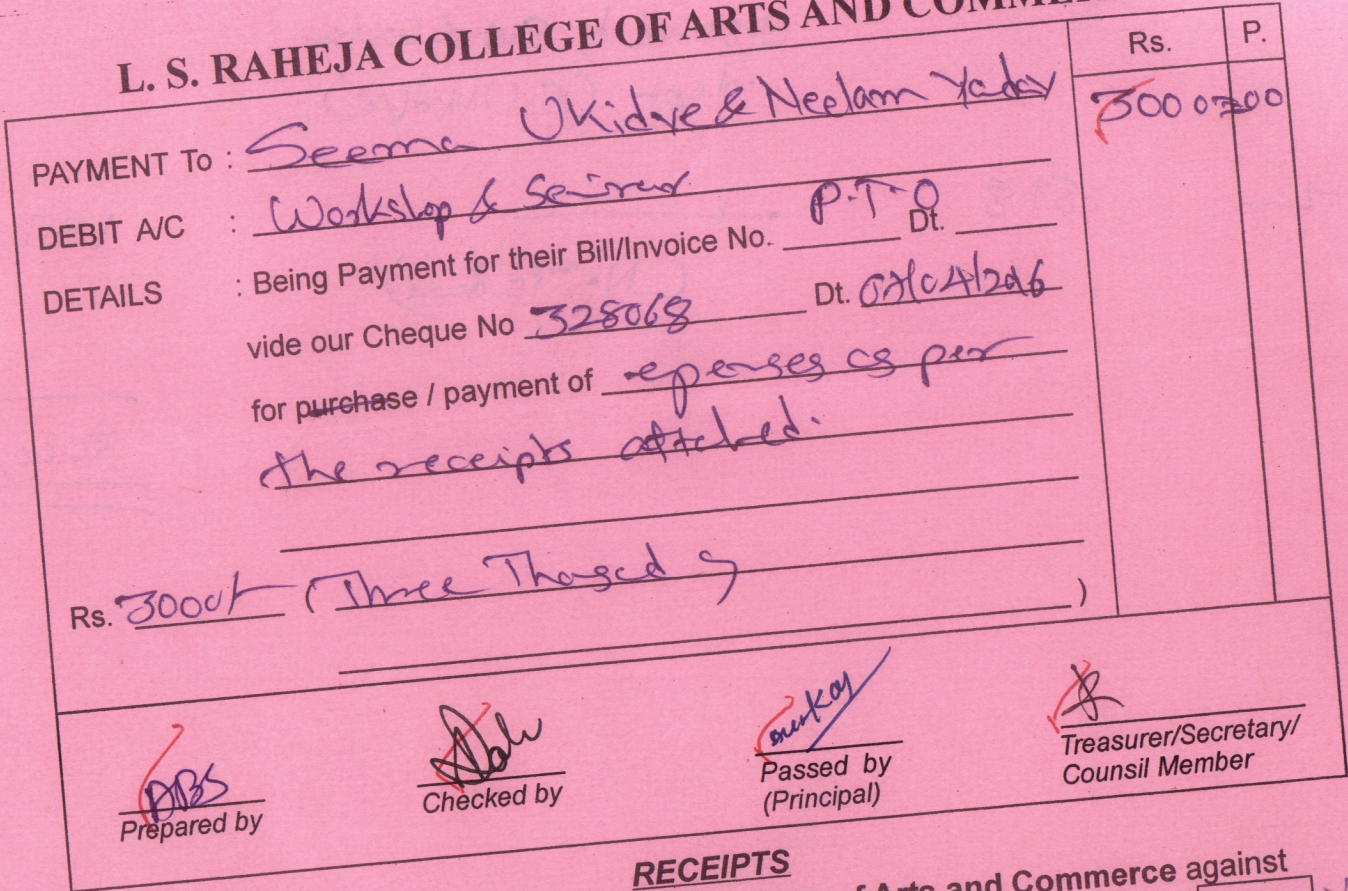 L. S. RAHEJA COLLEGE OF ARTS AND COMME
Rs. P.
PAYMENT To : Seema Ukidve & Neelam Yadav 3000=00
DEBIT A/C : Workshop &
P.T.O
DETAILS : Being Payment for their Bill/Invoice No. Dt.
vide our Cheque No 328068 Dt.
for purchase / payment of epenses as per
the receipts attached.
Rs. 3000/- (Three )
ABS
Prepared by
Checked by
Passed by
(Principal)
Treasurer/Secretary/
Counsil Member
RECEIPTS
f Arts and Commerce against